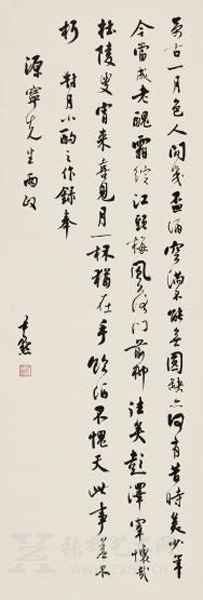 萬古一月色人間幾盃酒空滿不能無圓缺亦何有昔時美少年
今當成老醜霜綻江頭梅風落門前柳往矣彭澤宰懷哉
杜陵叟宵來喜見月一杯猶在手飲酒不愧天此事差不
朽 對月小酌之作錄奉
源寧先生兩政
尹默